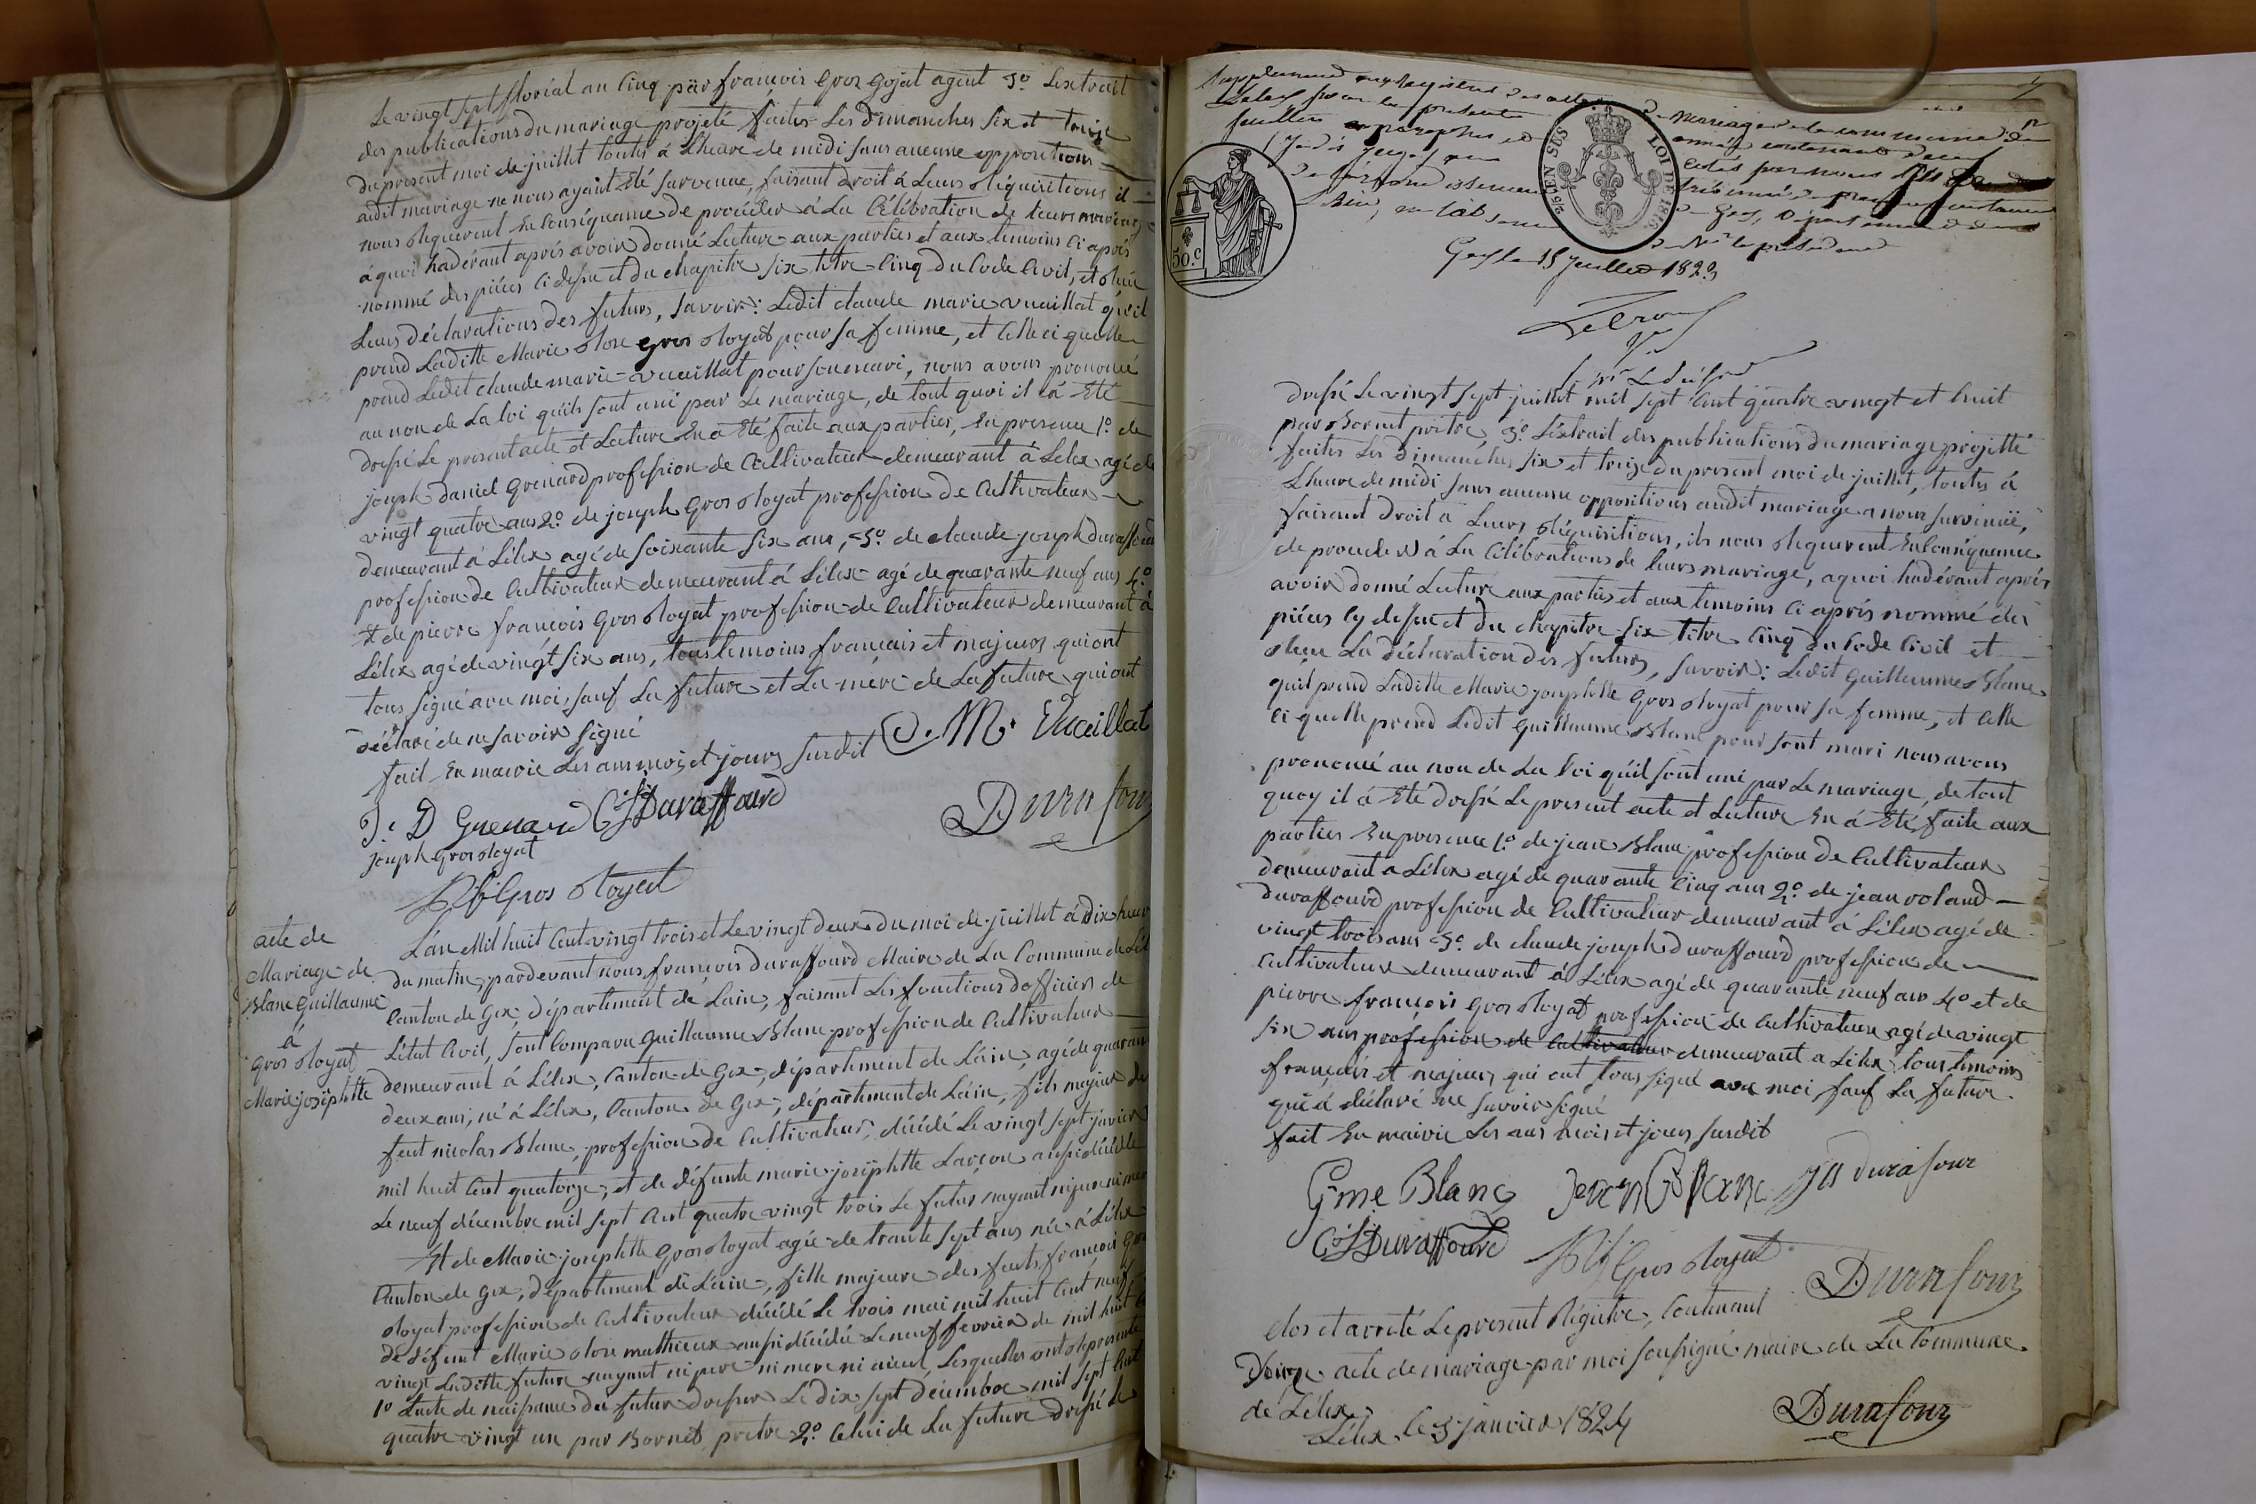 Le vingt sept floréal an Cinq par françois Gros Gojat agent 3.º Lextrait
des publications du mariage projeté faites Les Dimanches Six et treize
du present moi de juillet toutes á Lheure de midi Sans aucune oppositions
audit mariage ne nous ayant Eté Survenue, faisant droit á Leurs Réquisitions il
nous Requerent En Conséquence de procéder á La Célébration de leurs mariage,
á quoi hadérant aprés avoir donné Lecture aux parties et aux temoins Ci aprés
nommé des piéces Ci desu et du chapitre Six titre Cinq du Code Civil, et Reçu
Leurs déclarations des futurs, Savoir: Ledit claude marie vuaillat qu'il
prend Laditte Marie Rose gros Royat pour Sa femme, et Celle ci quelle
prend Ledit claude marie vuaillat pour Son mari, nous avons prononcé
au non de La loi qu'ils Sont uni par Le mariage, de tout quoi il á Eté
dressé Le present acte et Lecture En a Eté faite aux parties, En presence 1.º de
joseph Daniel Grenard profession de Cultivateur demeurant á Lélex agé de
vingt quatre ans 2.º de joseph Gros Royat profession de Cultivateur
demeurant á Lélex agé de Soixante Six ans, 3.º de claude joseph Duraffourd
profession de Cultivateur demeurant á Lélex agé de quarante neuf ans 4.º
Et de pierre françois Gros Royat profession de Cultivateur demeurant á
Lélex agé de vingt Six ans, tous temoins français et majeurs qui ont
tous Signé avec moi, Sauf La future et La mére de La future qui ont
déclaré de ne Savoir Signé
fait En mairie Les ans mois et jours Susdit
C. M. Vuaillat
J. D Grenard C J Duraffourd
Durafour
joseph gros Royat
P f Gros Royat
acte de
Mariage de
Blanc Guillaume
á
Gros Royat
Marie josephtte
L'an Mil huit Cent vingt trois et Le vingt deux du moi de juillet á Dix heure
du matin, pardevant nous françois Duraffourd Maire de La Commune de Lélex
Canton de Gex, département de Lain, faisant Les fonctions dofficier de
Létat Civil, Sont Comparu Guillaume Blanc profession de Cultivateur
demeurant á Lélex, Canton de Gex, département de Láin, agé de quarante
deux ans, né á Lélex, Canton de Gex, département de Lain, fils majeur de
feut nicolas Blanc, profession de Cultivateur, décédé Le vingt Sept janvier
mil huit Cent quatorze, et de défunte marie josephtte Lançon aussi décédée
Le neuf décembre mil Sept Cent quatre vingt trois Le futur nayant ni pere ni mere
Et de Marie josephtte Gros Royat agée de trante Sept ans née á Lélex
Canton de Gex, département de Lain, fille majeure des feuts françois Gros
Royat profession de Cultivateur décédé Le trois mai mil huit Cent neuf
de défunt Marie Rose mathieux aussi décédée Le neuf fevrier de mil huit
vingt Laditte future nayant ni pere ni mere ni aieul, Lesquelles ont Représenté
1º Lacte de naissance du futur dresser Le Dix Sept décembre mil Sept Cent
quatre vingt un par Bornet pretre 2.º Celui de La future dréssé Le
Supplement aux Registres des actes de mariages de la commune de
50.c
LOI DE 1816
Gex le 15 Juillet 1823
dressé Le vingt Sept juillet mil Sept Cent quatre vingt et huit
par Bornet pretre, 3.º Léxtrait des publications du mariage projetté
faites Les Dimanches Six et treize du present moi de juillet, toutes á
Lheure de midi Sans aucune oppositions audit mariage a nous Survenüe,
faisant droit a Leurs Réquisitions, ils nous Requerent En Conséquence
de procéder á La Célébrations de leurs mariage, a quoi hadérant aprés
avoir donné Lecture aux parties et aux temoins Ci aprés nommé des
piéces Cy desu et du chapitre Six titre Cinq du Code Civil et
Reçu La déclaration des futurs, Savoir: Ledit Guillaume Blanc
qu'il prend Laditte Marie josephtte Gros Royat pour Sa femme, et Celle
Ci quelle prend Ledit Guillaume Blanc pour Sont mari nous avons
prononcé au non de La loi qu'il Sont uni par Le mariage, de tout
quoy il á Eté dressé Le present acte et Lecture En á Eté faite aux
parties En presence 1.º de jean Blanc profession de Cultivateur
demeurant a Lélex agé de quarante Cinq ans 2.º de jean roland
Duraffourd profession de Cultivateur demeurant á Lélex agé de
vingt trois ans 3.º de claude joseph Duraffourd profession de
Cultivateur demeurant á Lélex agé de quarante neuf ans 4.º et de
pierre françois Gros Royat profession de Cultivateur agé de vingt
Six ans profession de Cultivateur demeurant a Lélex, tous temoins
français et majeurs qui ont tous Signé avec moi Sauf La future
qui á déclaré ne Savoir Signé
fait En mairie Les ans mois et jours Susdit
Gme Blanc Jean Blanc J R Durafour
C J Duraffourd
P f Gros Royat
Durafour
Clos et arreté Le present Régistre, Contenant
Douze acte de mariage par moi Soussigné maire de La Commune
de Lélex
Lélex le 3 janvier 1824
Durafour